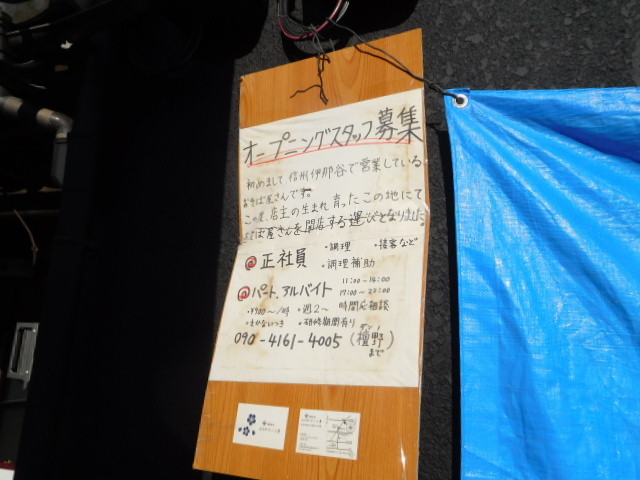 オープニングスタッフ募集
初めまして 信州伊那谷で営業している
おそば屋さんです。
この度、店主の生まれ育ったこの地にて
そば屋さんを開店する運びとなりました。
@正社員 ・調理 ・接客など
・調理補助
@パート、アルバイト 11:00〜14:00
17:00〜22:00
・¥900〜/時 ・週2〜 時間応相談
・まかないつき ・研修期間有り
090-4161-4005 (檀野)
ダンノ
まで